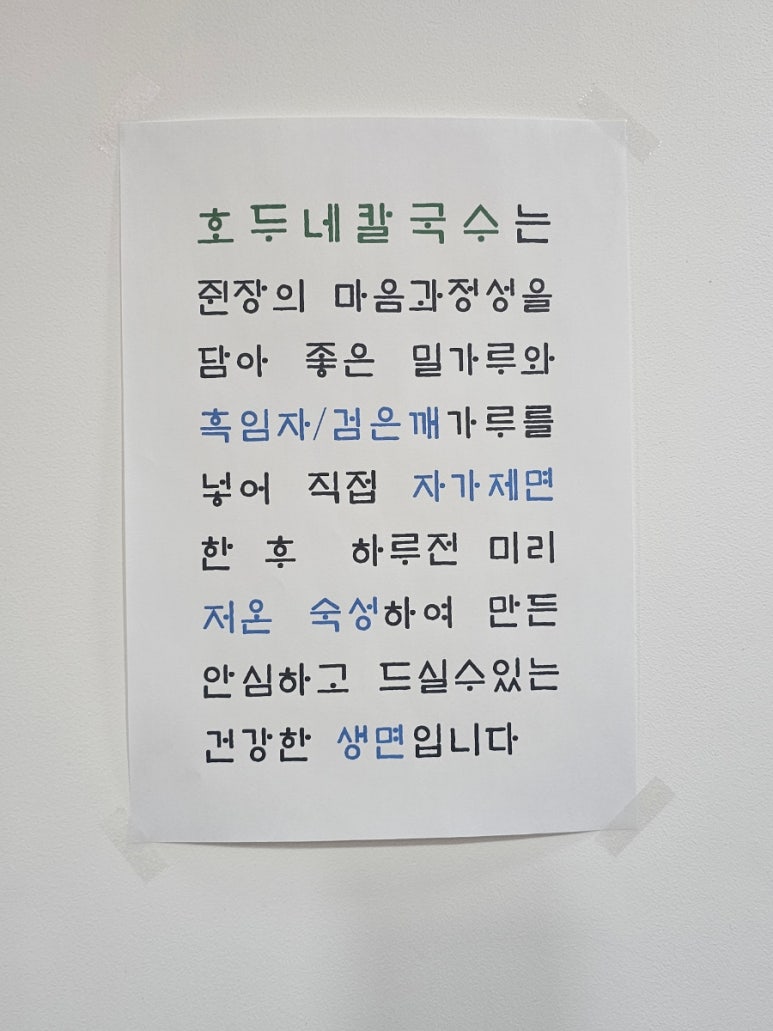 호두네칼국수는
쥔장의 마음과정성을
담아 좋은 밀가루와
흑임자/검은깨가루를
넣어 직접 자가제면
한 후 하루전 미리
저온 숙성하여 만든
안심하고 드실수있는
건강한 생면입니다